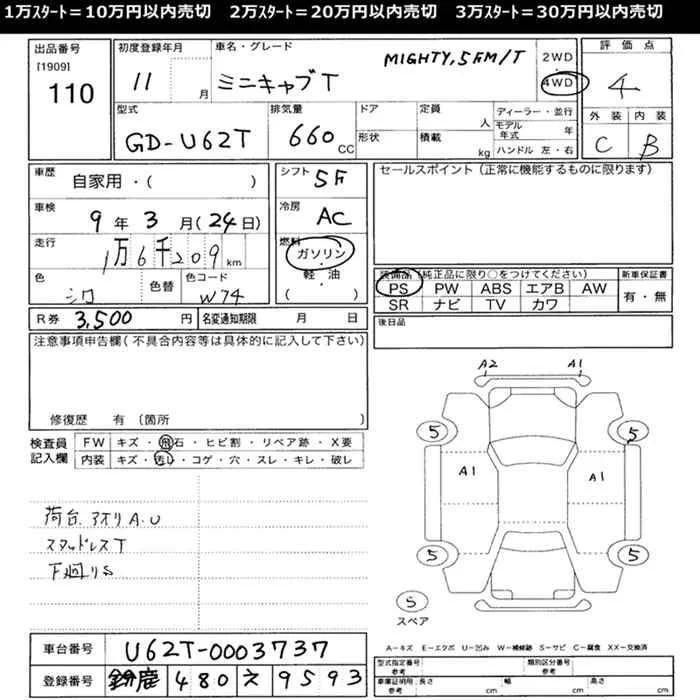 1万ｽﾀｰﾄ＝10万円以内売切　2万ｽﾀｰﾄ＝20万円以内売切　3万ｽﾀｰﾄ＝30万円以内売切
出品番号
[1909]
110
初度登録年月
11 月
車名・グレード
ミニキャブT
MIGHTY, 5FM/T
2WD
・
4WD
評価点
4
外装 内装
C B
型式
GD-U62T
排気量
660 CC
ドア
形状
定員 人
積載 kg
ディーラー・並行
モデル年式 年
ハンドル 左・右
車歴
自家用・( )
車検
9年3月(24日)
走行
1万6千209km
色
シロ
色替
色コード
W74
シフト
5F
冷房
AC
燃料
ガソリン
・
軽・油
( )
セールスポイント (正常に機能するものに限ります)
装備品 (純正品に限り○をつけてください)
PS PW ABS エアB AW
SR ナビ TV カワ
新車保証書
有・無
R券 3,500 円
名変通知期限 月 日
後日品
注意事項申告欄(不具合内容等は具体的に記入して下さい)
修復歴 有 (箇所 )
検査員
記入欄
FW キズ・飛石・ヒビ割・リペア跡・X要
内装 キズ・汚れ・コゲ・穴・スレ・キレ・破レ
荷台.アオリA.U
スタッドレスT
下廻りS
A2 A1
5 5
A1 A1
5 5
5
スペア
車台番号 U62T-0003737
登録番号 鈴鹿 480 え 9593
A−キズ E−エクボ U−凹み W−補修跡 S−サビ C−腐食 XX−交換済
型式指定番号
参考
類別区分番号
参考
車庫証明用
参考
長さ cm
幅 cm
高さ cm